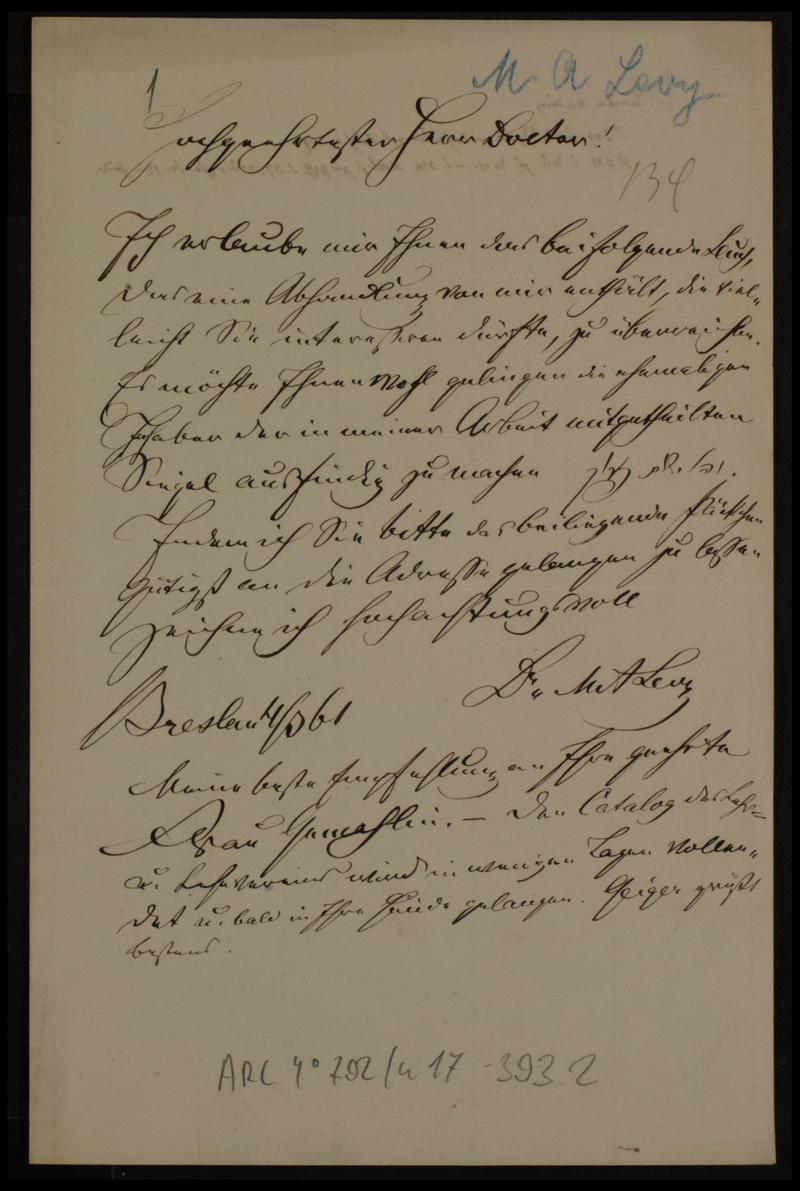 M A Levy
1
Hochgeehrtester Herr Doctor!
134
Ich erlaube mir Ihnen das beifolgende Buch,
das eine Abhandlung von mir enthält, die viel-
leicht Sie interessiren dürfte, zu überreichen.
Es möchte Ihnen wohl gelingen die ehemaligen
Inhaber der in meiner Arbeit mitgetheilten
Siegel ausfindig zu machen
Indem ich Sie bitte das beiliegende Päckchen
gütigst an die Adresse gelangen zu lassen
zeichne ich hochachtungsvoll
Dr. M A Levy
Breslau 61
Meine beste Empfehlung an Ihre geehrte
Frau Gemahlin. – Den Catalog des Lehr-
u. Lesevereins wird in wenigen Tagen vollen-
det u. bald in Ihre Hände gelangen. Geiger grüßt
bestens.
ARC 4° 792/a 17 - 393.2